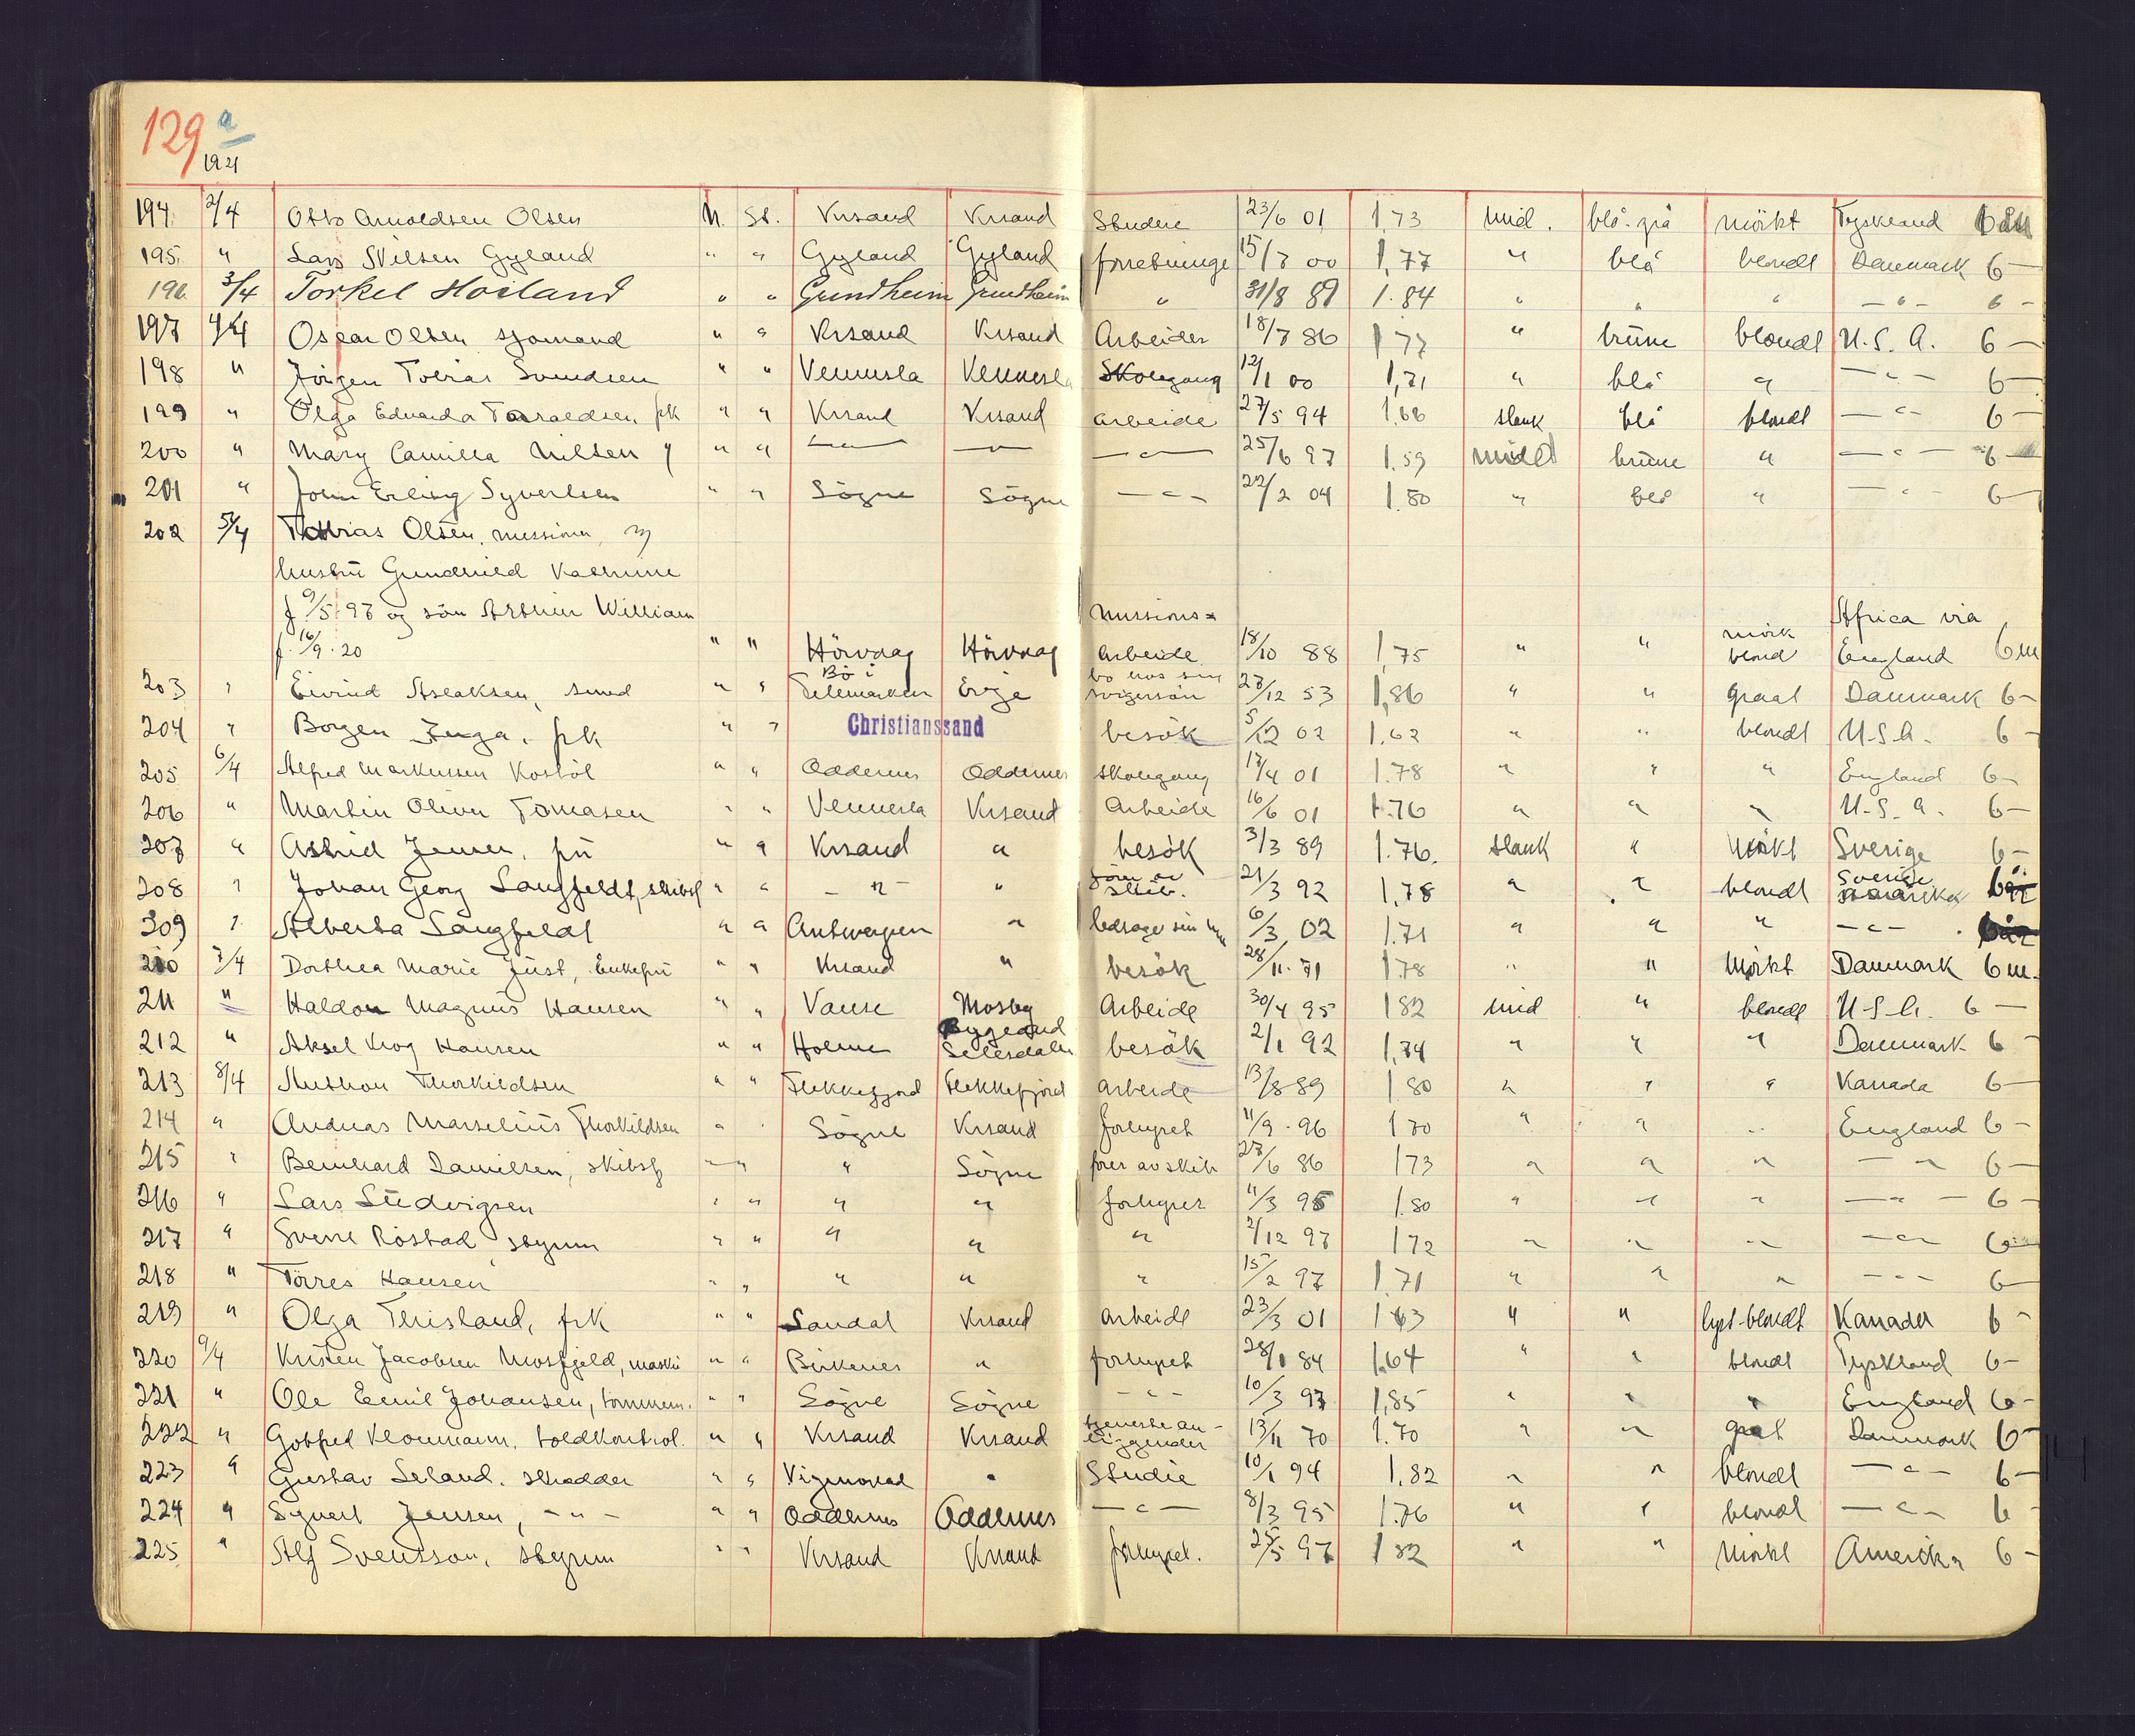 129 a
1921
194. 2/4 Otto Arnoldsen Olsen N. St. Krsand Krsand Studere 23/6 01 1,73 mid. blå-grå mörkt Tyskland
195. " Lars Nilsen Gyland " " Gyland Gyland forretninge 15/7 00 1,77 " blå blondt Danmark 6 —
196 3/4 Torkel " " Grindheim Grindheim " 31/8 89 1.84 " " " — " — 6 —
197 4/4 Oscar Olsen sjömand " " Krsand Krsand Arbeider 18/7 86 1 77 " brune blondt U.S.A. 6 —
198 " Jörgen Tobias Svendsen " " Vennesla Vennesla Skolegang 12/1 00 1,71 " blå " — " — 6 —
199 " Olga Edvarda Taraldsen, frk " " Krsand Krsand arbeide 27/5 94 1.66 slank blå blondt — " — 6 —
200 " Mary Camilla Nilsen " " " — " — — " — — " — 25/6 97 1.59 midl brune " — " — 6 —
201 " John Erling Syvertsen " " Sögne Sögne — " — 22/2 04 1.80 " blå " — " — 6 —
202 5/4 Tobias Olsen, missionær, og
hustru Gundhild Kathrine
f 9/5 97 og sön Arthur William missions= Africa via
f. 16/9.20 " " Hövaag Hövaag Arbeide 18/10 88 1,75 " " mörk blond England 6 m
203 " Eivind Aslaksen, smed " " Bö i Telemarken Evje bo hos sin svigersön 27/12 53 1,86 " " graat Danmark 6 —
204 " Borgen Inga, frk " " Christianssand besök 5/12 02 1.62 " " blondt U.S.A. 6 —
205 6/4 Alfred Markussen Kostöl " " Oddernes Oddernes skolegang 17/4 01 1.78 " " " England 6 —
206 " Martin Oliver Tomasen " " Vennesla Krsand Arbeide 16/6 01 1.76 " " " U.S.A. 6 —
207 " Astrid Jensen, fru " " Krsand " besök 3/3 89 1.76. slank " mörkt Sverige 6 —
208 " Johan Georg Langfeldt, skibsf " " — " — " skib. 21/3 92 1,78 " " blondt Sverige
209 " Alberta Langfeldt " " Antwerpen " ledsager sin 6/3 02 1.71 " " " — " —
210 7/4 Dorthea Marie Just, Enkefru " " Krsand " besök 28/11. 71 1 78 " " Mörkt Danmark 6 m.
211 " Haldor Magnus Hansen " " Vanse Mosby Arbeide 30/4 95 1 82 mid " blondt U.S.A. 6 —
212 " Aksel Krog Hansen " " Holme Bygland Setesdalen besök 2/1 92 1,74 " " " Danmark 6 —
213 8/4 Anthon Thorkildsen " " Flekkefjord Flekkefjord arbeide 13/8 89 1 80 " " " Kanada 6 —
214 " Andreas Marselius Thorkildsen " " Sögne Krsand forhyret 11/9.96 1 70 " " " England 6 —
215 " Bernhard Danielsen, skibsf " " " Sögne förer av skib 27/6 86 1 73 " " " — " 6 —
216 " Lars Ludvigsen " " " " forhyres 11/3 95 1.80 " " " — " — 6 —
217 " Sverre Röstad styrm " " " " " 2/12 97 1 72 " " " — " — 6 —
218 " Törres Hansen " " " " " 15/2 97 1.71 " " " — " — 6 —
219 " Olga Thisland, frk " " Sandal Krsand Arbeide 23/3 01 1 63 " " lyst-blondt Kanada 6 —
220 9/4 Kristen Jacobsen Mosfjeld, maski " " Birkenes " forhyret 28/1 84 1.64 " " blondt Tyskland 6 —
221 " Ole Emil Johansen, tömmerm. " " Sögne Sögne — " — 10/3 97 1,85 " " " England 6 —
222 " Gotfred Kloumann, toldkontrol. " " Krsand Krsand tjeneste an- liggender 13/11 70 1.70 " " graat Danmark 6 —
223 " Gustav Seland. skrædder " " Vigmostad " Studie 10/1 94 1.82 " " blondt — " — 6 —
224 " Syvert Jensen, — " — " " Oddernes Oddernes — " — 8/3 95 1.76 " " blondt — " — 6 —
225 " Alf Svensson, styrm " " Krsand Krsand forhyret. 25/5 97 1 82 " " mörkt Amerika 6 —